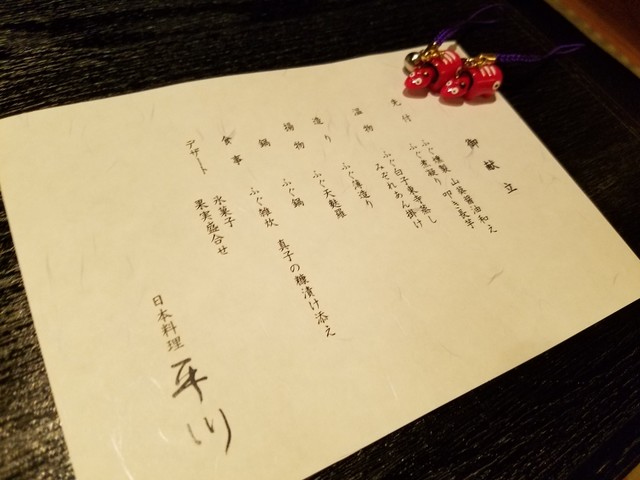 御献立
先付
ふぐ燻製 山葵醤油和え
ふぐ煮凝り 叩き長芋
温物
ふぐ白子東寺蒸し
みぞれあん掛け
造り
ふぐ薄造り
揚物
ふぐ天麩羅
鍋
ふぐ鍋 真子の糠漬け添え
食事
ふぐ雑炊
デザート
氷菓子
果実盛合せ
日本料理 平川